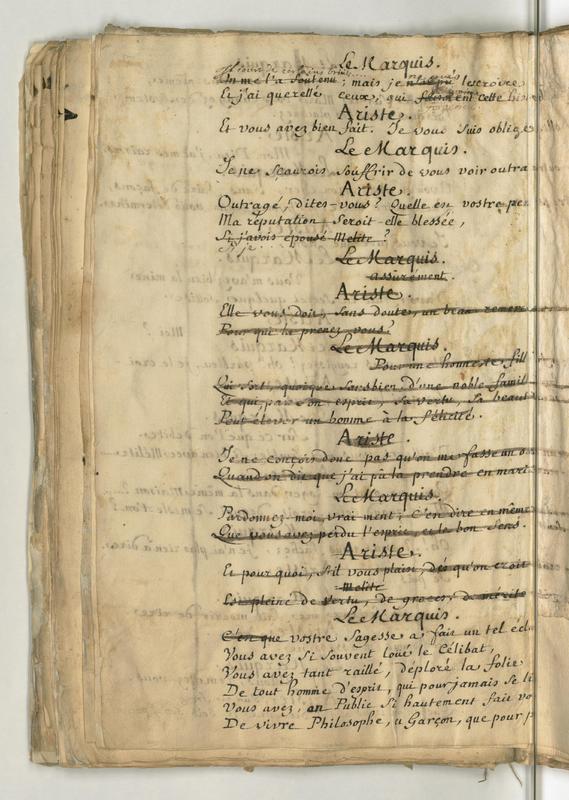 Le Marquis.
On me l'a soutenu ; mais je n'ai pû le croire
Et j'ai querellé ceux, qui faisoient cette hist
Ariste.
Et vous avez bien fait. Je vous suis oblige
Le Marquis.
Je ne sçaurois souffrir de vous voir outra
Ariste.
Outragé, dites-vous? Quelle est vostre pen
Ma réputation seroit-elle blessée,
Si j'avois épousé Melite ?
Le Marquis.
Assurément.
Ariste.
Elle vous doit, sans doute, un beau remer
Pour qui la prenez vous?
Le Marquis.
Pour une honneste fill
Qui sort, quoique sans bien, d'une noble famil
Et qui, par son esprit, sa vertu, sa beaut
Peut élever un homme à la félicité.
Ariste.
Je ne conçois donc pas qu'on me fasse un o
Quand on dit que j'ai pû la prendre en mari
Le Marquis.
Pardonnez-moi, vraiment ; C'en dire en même
Que vous avez perdu l'esprit, et le bon sens.
Ariste.
Et pourquoi, s'il vous plaist, dès qu'on croit
Melite
Est pleine de vertu, de graces, de mérite
Le Marquis.
C'est que vostre sagesse a fait un tel écla
Vous avez si souvent loué le Célibat,
Vous avez tant raillé, déploré la folie
De tout homme d'esprit, qui pour jamais se li
Vous avez, en Public si hautement fait vo
De vivre Philosophe, et Garçon, que pour p